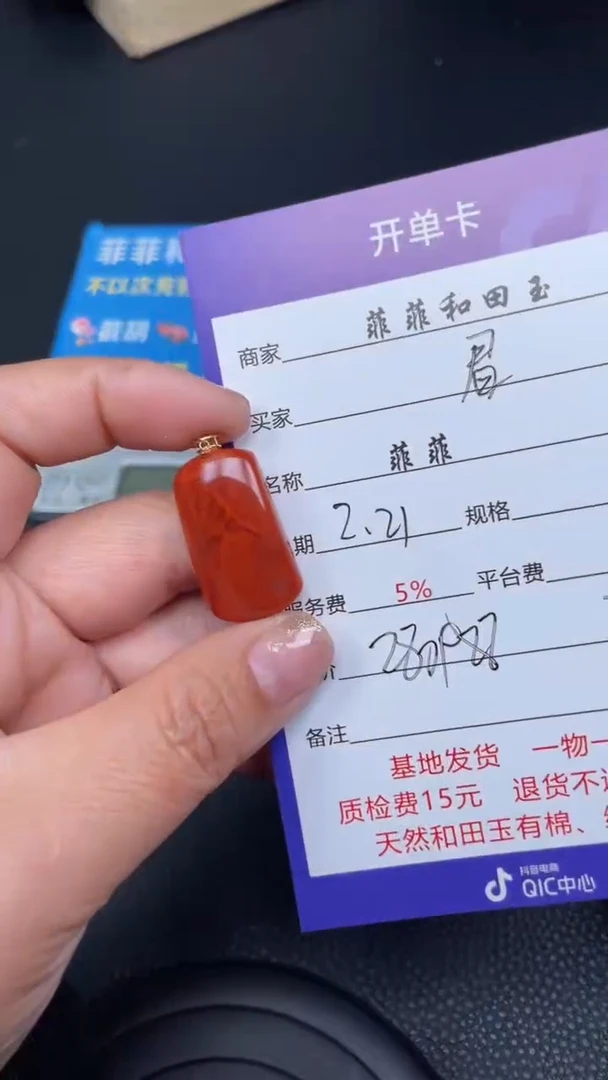 开单卡
菲菲和
不以次充
商家 菲菲和田玉
买家
名称 菲菲
期 2.21 规格
服务费 5% 平台费
价
备注
基地发货 一物一
质检费15元 退货不
天然和田玉有棉、
抖音电商
QIC中心